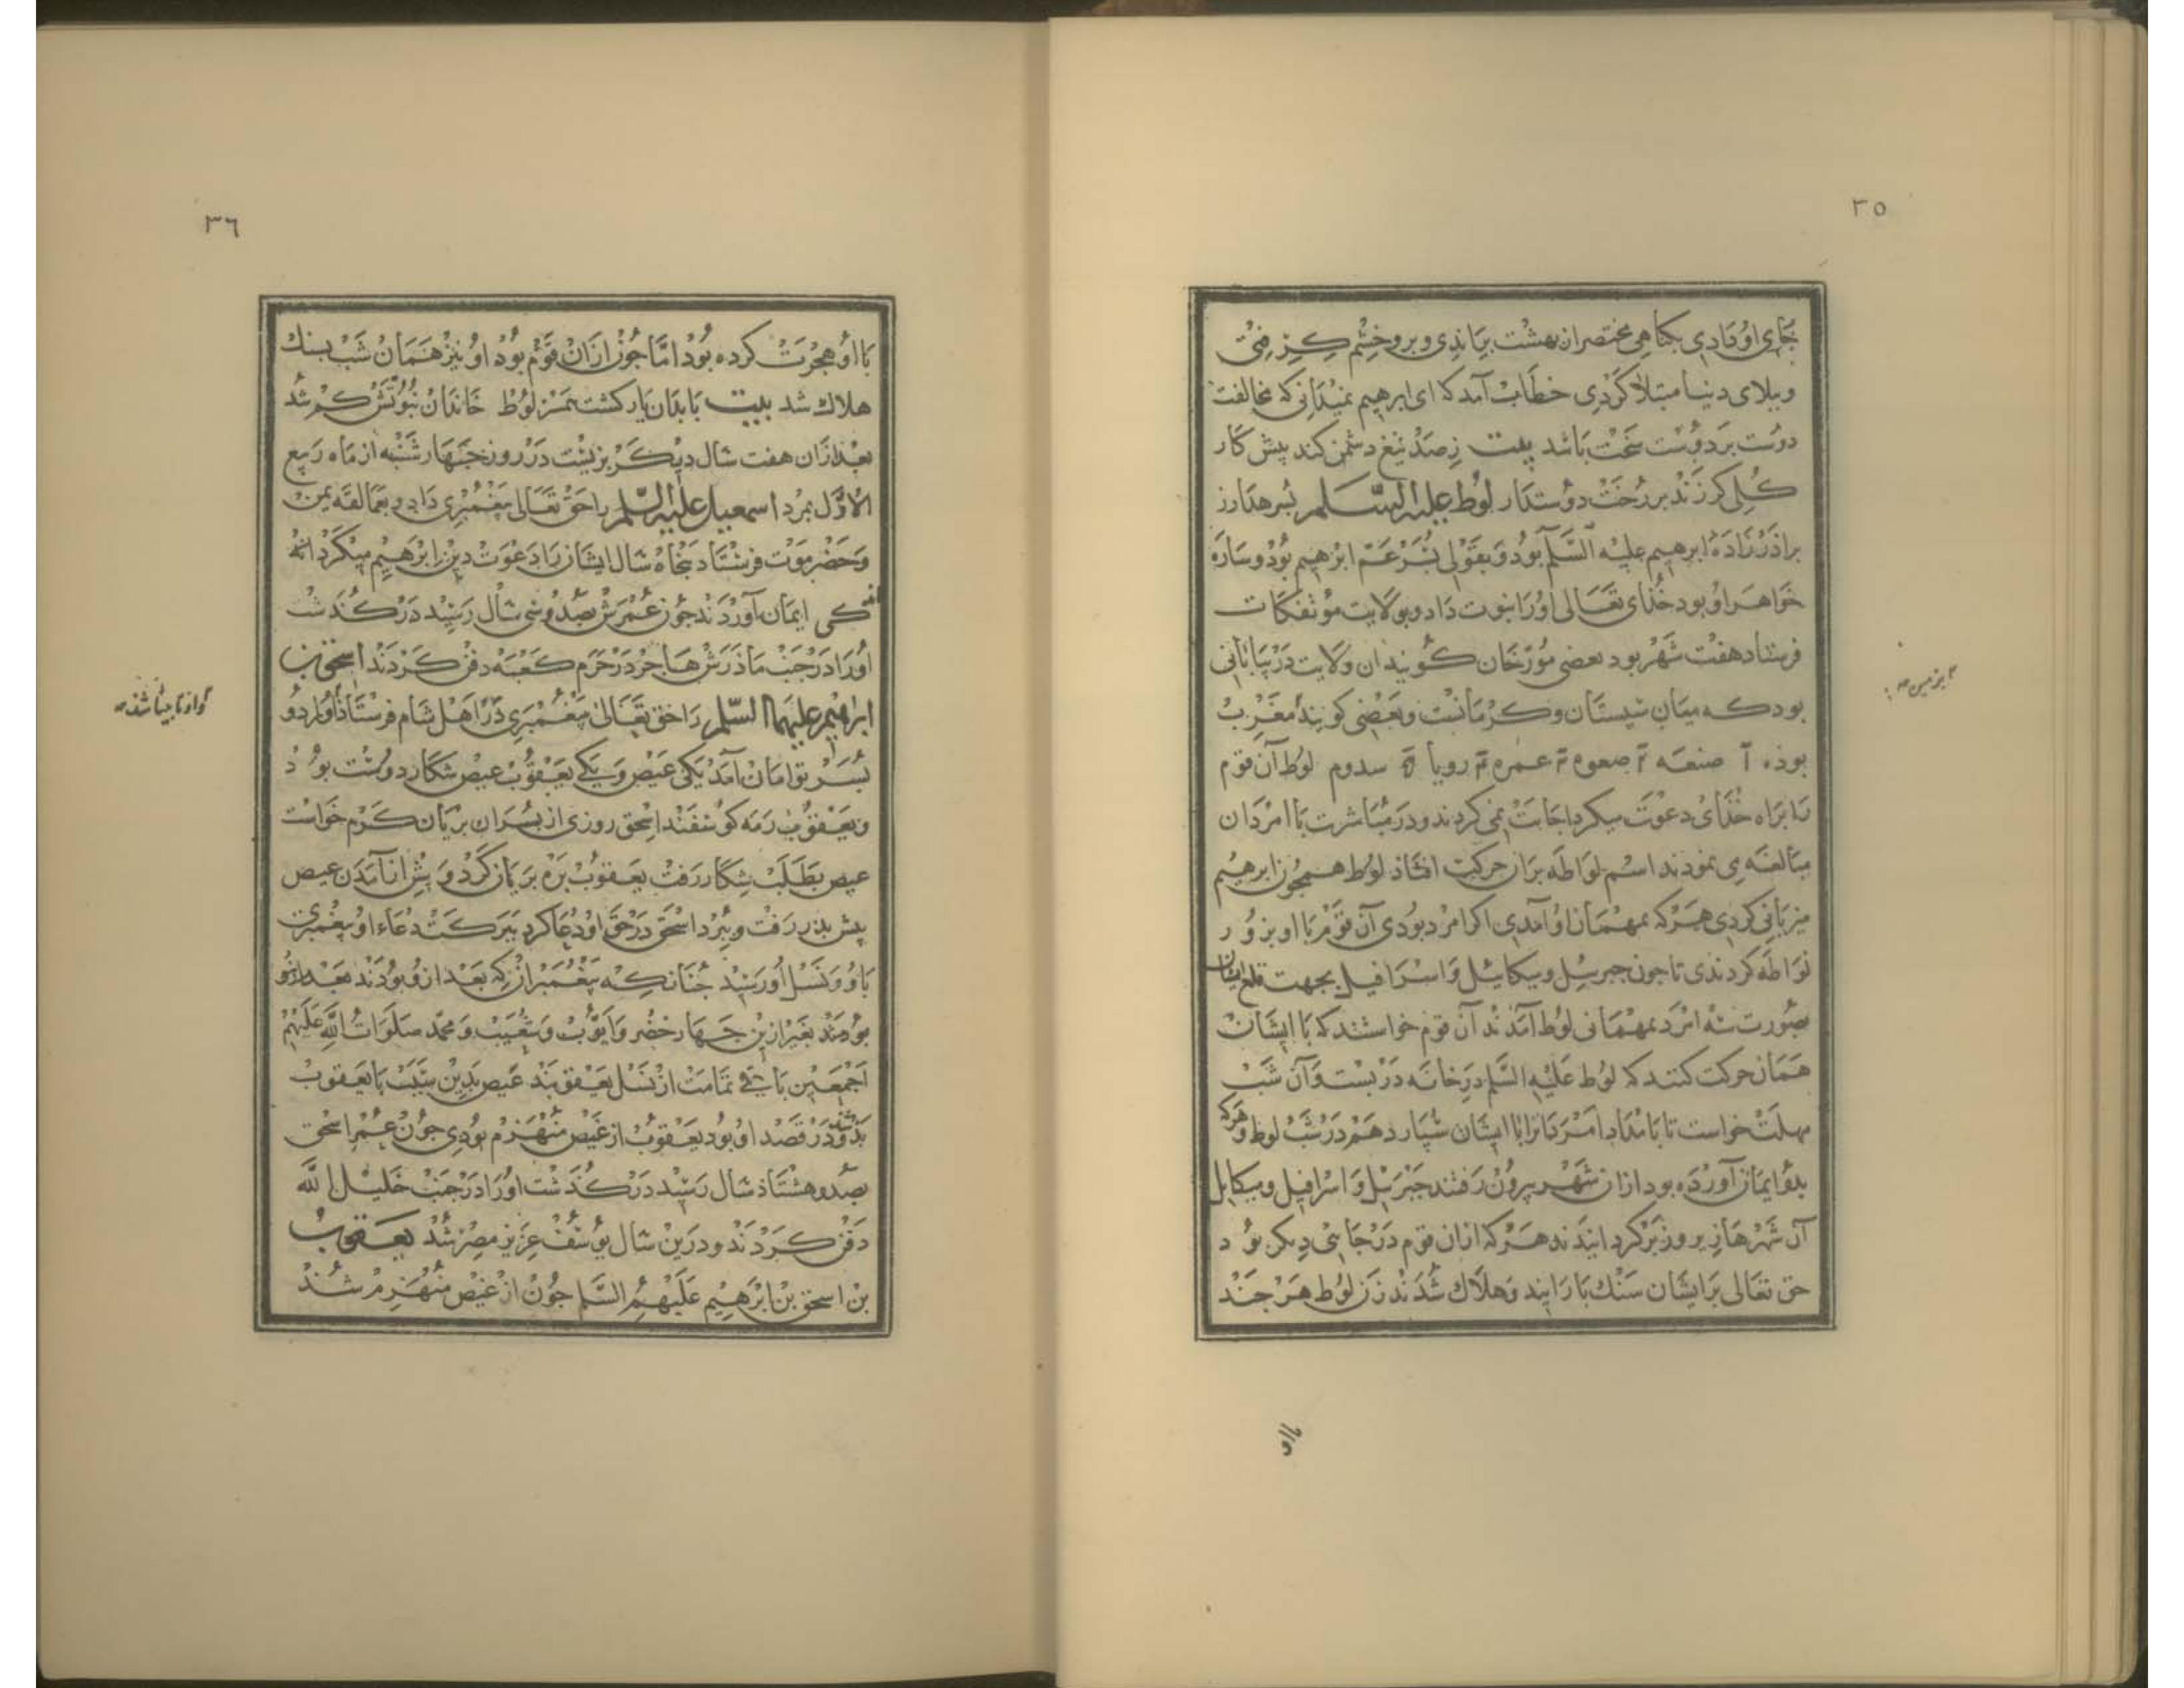 ٣٥
جای او دادی بکناهی مختصر از بهشت براندی و برو خشم کرفتی
و ببلای دنیا مبتلا کردی خطاب آمد که ای ابرهیم نمیدانی که مخالفت
دوست بر دوست سخت باشد بیت ز صد تیغ دشمن کند بیش کار
کلی کز زند بر رخت دوستدار لوط علیه السلم بسر هارز
براذرزاده ابرهیم علیه السلم بود و بقولی بسر عم ابرهیم بود و ساره
خواهر او بود خدای تعالی اورا نبوت داد و بولایت مؤتفکات
فرستاد هفت شهر بود بعضی مورخان کویند ان ولایت در بیابانی
بود که میان سیستان و کرمانست و بعضی کویند مغرب
بوذه صنعه صعوه عمره روبا سدوم لوط آن قوم
را براه خذای دعوت میکرد اجابت نمی کردند و در مباشرت با امردان
مبالغه می نمودند اسم لواطه بران حرکت افتاذ لوط همجون ابرهیم
میزبانی کردی هرکه بمهمان او آمدی اکر امرد بودی آن قوم با او بزور
لواطه کردندی تا جون جبرییل و میکاییل و اسرافیل بجهت قلع ایشان
بصورت سه امرد بمهمانی لوط آمدند آن قوم خواستند که با ایشان
همان حرکت کنند که لوط علیه السلم در خانه در بست و آن شب
مهلت خواست تا بامداد امردانرا با ایشان سپارد هم در شب لوط و هرکه
بدو ایمان آورده بود ازان شهر بیرون رفتند جبرییل و اسرافیل و میکاییل
آن شهرها زیر و زبر کردانیدند هرکه ازان قوم در جایی دیکر بود
حق تعالی بر ایشان سنک بارانید و هلاک شدند زن لوط هر جند
٣٦
با او هجرت کرده بود اما جون ازان قوم بود او نیز همان شب بسنک
هلاک شد بیت با بدان یار کشت همسر لوط خاندان نبوتش کم شد
بعد ازان هفت سال دیکر بزیست در روز جهارشنبه از ماه ربیع
الاول بمرد اسمعیل علیه السلم را حق تعالی بیغمبری داد و بعمالقه یمن
و حضرموت فرستاد بنجاه سال ایشان را دعوت دین ابرهیم میکرد اند
کی ایمان آوردند جون عمرش بصد و سی سال رسید درکذشت
اورا در جنب ماذرش هاجر در حرم کعبه دفن کردند اسحق بن
ابراهیم علیهما السلم را حق تعالی بیغمبری در اهل شام فرستاذ اورا دو
بسر توامان آمد یکی عیص و یکی یعقوب عیص شکار دوست بود
و یعقوب رمه کوسفند اسحق روزی از بسران بریان کرم خواست
عیص بطلب شکار رفت یعقوب بره بریان کرد و بیش از آمدن عیص
بیش بذر رفت و ببرد اسحق در حق او دعا کرد ببرکت دعاء او بیغمبری
باو و نسل او رسید جنانکه بیغمبران که بعد ازو بودند
بودند بغیر ازین جهار خضر و ایوب و شعیب و محمد صلوات الله علیهم
اجمعین باقی تمامت از نسل یعقوبند عیص بدین سبب با یعقوب
بد شد و در قصد او بود یعقوب از عیص منهزم بودی جون عمر اسحق
بصد و هشتاذ سال رسید درکذشت اورا در جنب خلیل الله
دفن کردند و درین سال یوسف عزیز مصر شد یعقوب
بن اسحق بن ابرهیم علیهم السلم جون از عیص منهزم شد